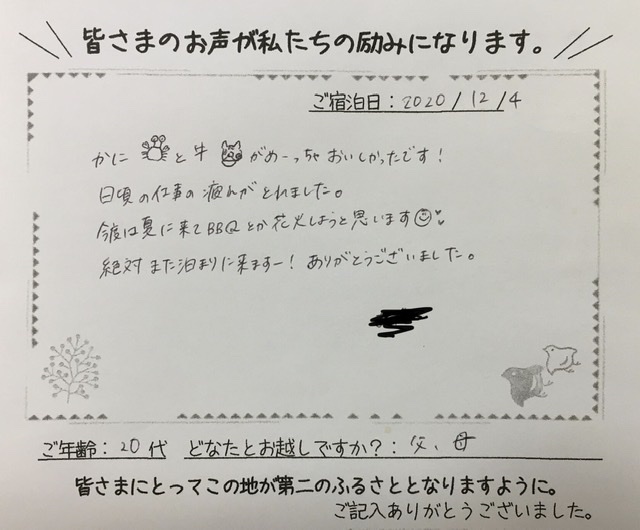 皆さまのお声が私たちの励みになります。
ご宿泊日：2020/12/4
かにと牛がめーっちゃおいしかったです！
日頃の仕事の疲れがとれました。
今度は夏に来てBBQとか花火しようと思います
絶対また泊まりに来ますー！ありがとうございました。
ご年齢：20代 どなたとお越しですか？：父、母
皆さまにとってこの地が第二のふるさととなりますように。
ご記入ありがとうございました。